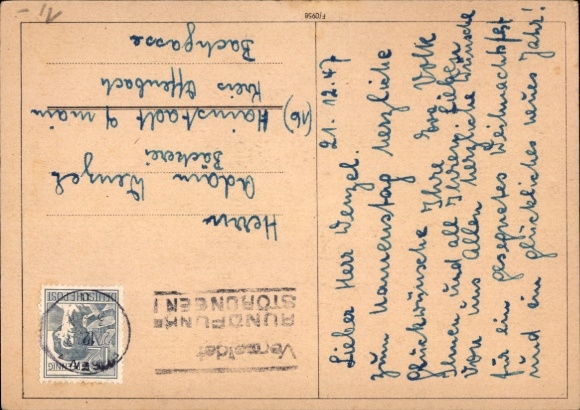 21.12.47
Lieber Herr Wenzel.
zum Namenstag herzliche
Glückwünsche Ihre Eva Volk
Ihnen und all Ihren Lieben
von uns Allen herzliche Wünsche
für ein gesegnetes Weihnachtsfest
und ein glückliches neues Jahr!
F/0958
Herrn
Adam Wenzel
Bäckerei
(16) Hainstadt a/main
Kreis Offenbach
Bachgasse
Vermeidet
RUNDFUNK=
STÖRUNGEN!
DEUTSCHE POST
12
PFENNIG
1/-